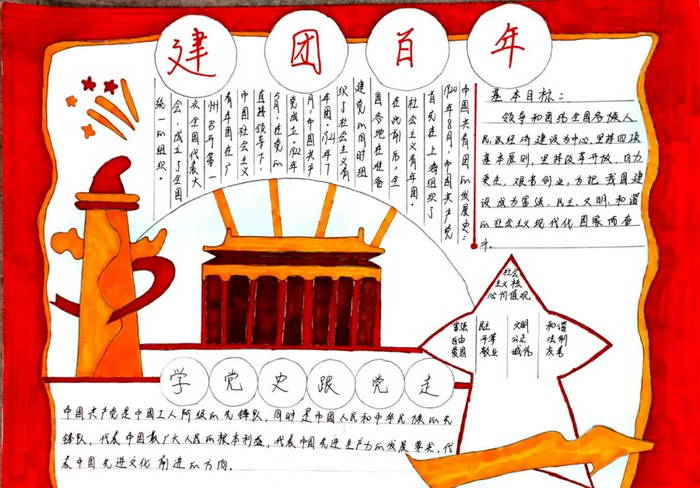 建团百年
中国共青团的发展史:
1920年8月,中国共产党
首先在上海组织了
社会主义青年团
在此前后,全
国各地在准备
建党的同时组
织了社会主义青
年团。1921年7
月,中国共产
党成立。1922年
5月,在党的
直接领导下,
中国社会主义
青年团在广
州召开第一
次全国代表大
会,成立了全国
统一的组织。
基本目标:
领导和团结全国各族人
民,以经济建设为中心,坚持四项
基本原则,坚持改革开放,自力
更生,艰苦创业,为把我国建
设成为富强,民主,文明,和谐
的社会主义现代化国家而奋
斗.
社会
主义核
心价值观
富强 民主 文明 和谐
自由 平等 公正 法制
爱国 敬业 诚信 友善
学党史跟党走
中国共产党是中国工人阶级的先锋队,同时是中国人民和中华民族的先
锋队,代表中国最广大人民的根本利益,代表中国先进生产力的发展要求,代
表中国先进文化前进的方向.